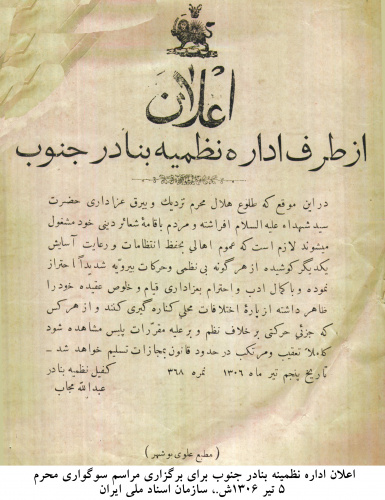 اعلان
از طرف اداره نظمیه بنادر جنوب
در این موقع که طلوع هلال محرم نزدیك و بیرق عزاداری حضرت
سید شهداء علیه السلام افراشته و مردم باقامهٔ شعائر دینی خود مشغول
میشوند لازم است که عموم اهالی بحفظ انتظامات و رعایت آسایش
یکدیگر کوشیده از هر گونه بی نظمی و حرکات بیرویه شدیداً احتراز
نموده و با کمال ادب و احترام بعزاداری قیام و خلوص عقیده خود را
ظاهر داشته از بارهٔ اختلافات محلی کناره گیری کنند و از هر کس
که جزئی حرکتی بر خلاف نظم و بر علیه مقررات پلیس مشاهده شود
کاملا تعقیب و مرتکب در حدود قانون بمجازات تسلیم خواهد شد ـ
تاریخ پنجم تیر ماه ۱۳۰۶ نمره ۳۶۸ کفیل نظمیه بنادر
عبدالله محاب
( مطبع علوی بوشهر )
اعلان اداره نظمینه بنادر جنوب برای برگزاری مراسم سوگواری محرم
۵ تیر ۱۳۰۶ش.، سازمان اسناد ملی ایران